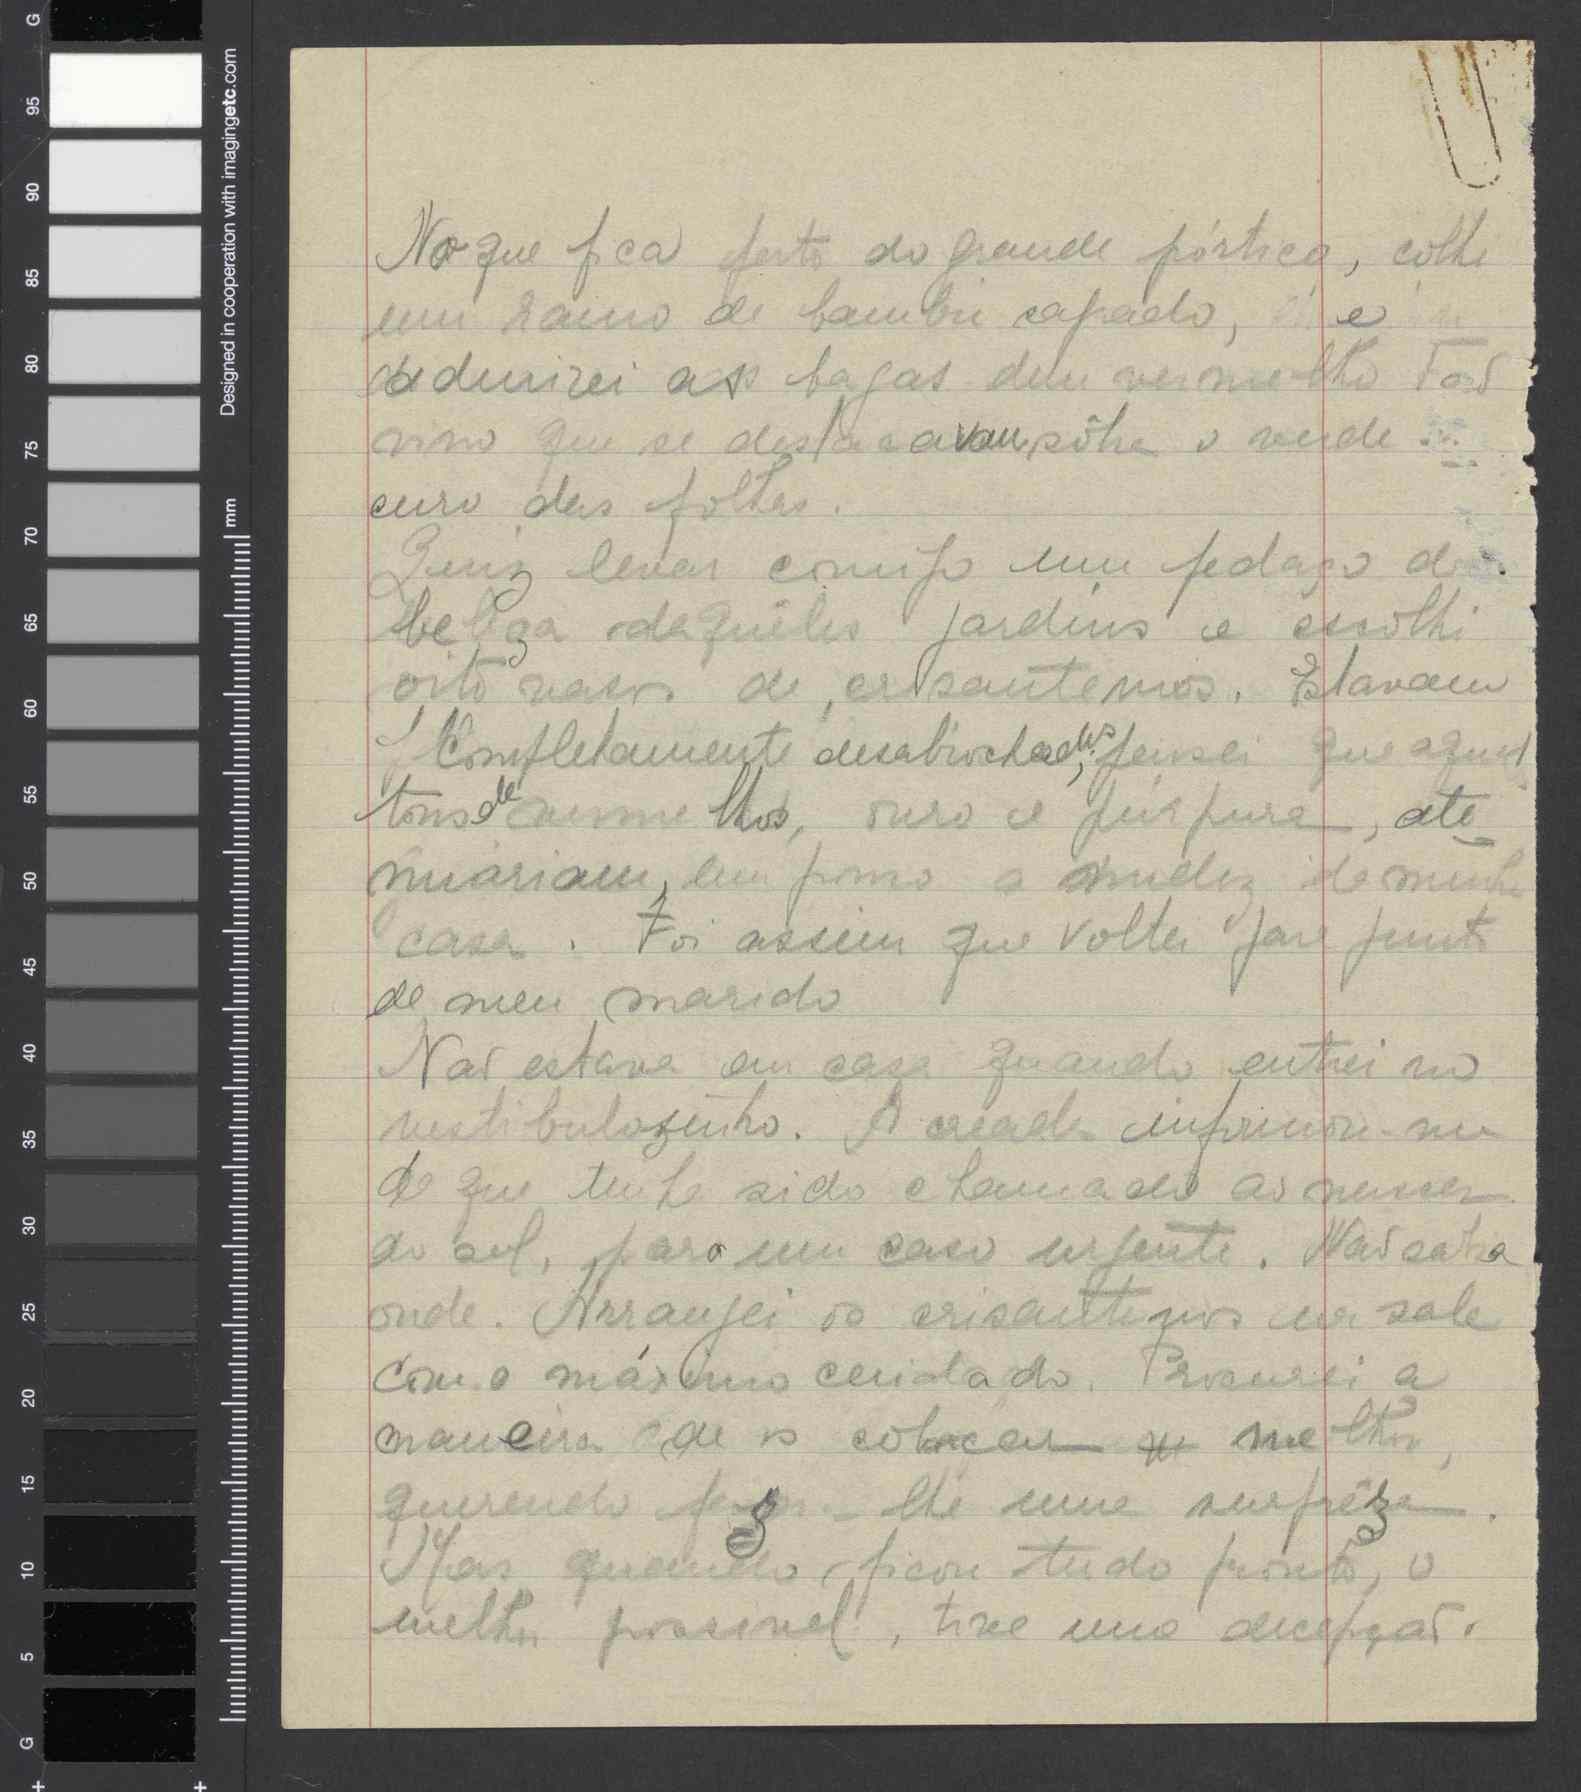 G
95
90
85
80
75
70
65
60
55
50
45
40
35
30
25
20
15
10
5
G
Designed in cooperation with imagingetc.com
mm
No que fica perto do grande pórtico, colhi
um ramo de bambú sagrado, e
admirei as bagas dum vermelho tão
vivo que se destacavam sôbre o verde
curo das folhas.
Quiz levar comigo um pedaço da
beleza daquêles jardins e escolhi
oito vasos de crisantemos. Estavam
Completamente desabrochados; pensei que aquel
tons de vermelhos, ouro e púrpura, ate
nuariam, um pouco a nudez de minha
casa. Foi assim que voltei para junto
de meu marido
Não estava em casa quando entrei no
vestibulozinho. A creada informou-me
de que tinha sido chamado ao nascer
do sol, para um caso urgente. Não sabia
onde. Arranjei os crisantemos na sala
com o máximo cuidado. Procurei a
maneira de os colocar melhor,
querendo fazer-lhe uma surprêza.
Mas quando ficou tudo pronto, o
melhor possivel, tive uma decepção.